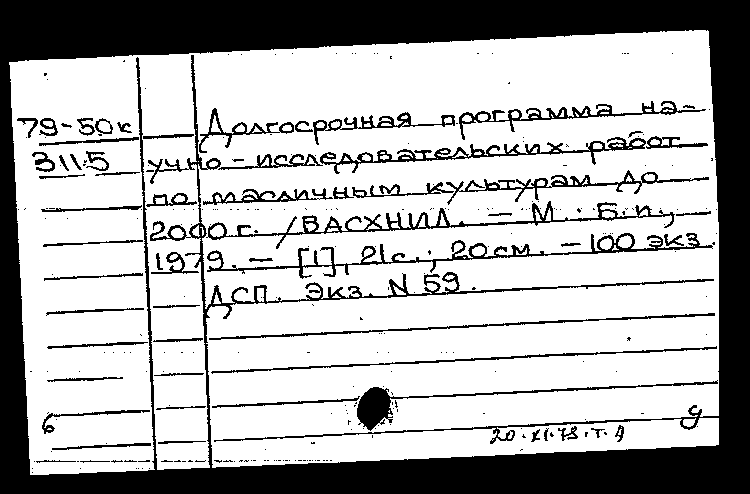 79-50к Долгосрочная программа на-
3115 учно-исследовательских работ
по масличным культурам до
2000 г. /ВАСХНИЛ. - М.: Б.и.,
1979. - [1], 21 с.; 20 см. - 100 экз.
ДСП. Экз. N 59.
6